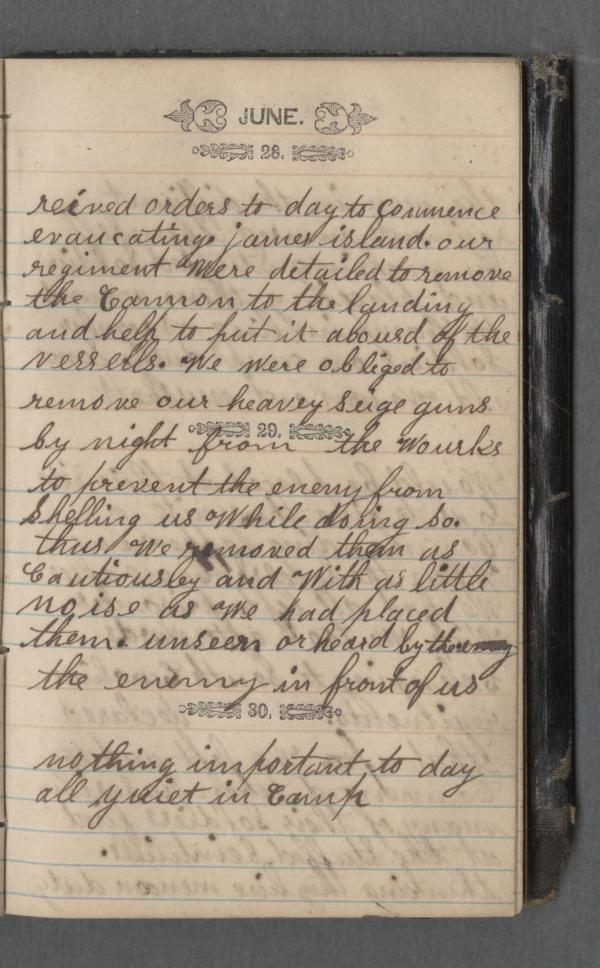 JUNE.
28.
reived orders to day to commence
evaucating james island. our
regiment Were detailed to remove
the Cannon to the landing
and help to put it abourd of the
vessells. We were obliged to
remove our heavey Seige guns
29.
by night from the Wourks
to prevent the enemy from
Shelling us While doing So.
thus We removed them as
Cautiousley and With as little
noise as We had placed
them. unseen or heard by the
the enemy in front of us
30.
nothing important to day
all quiet in Camp